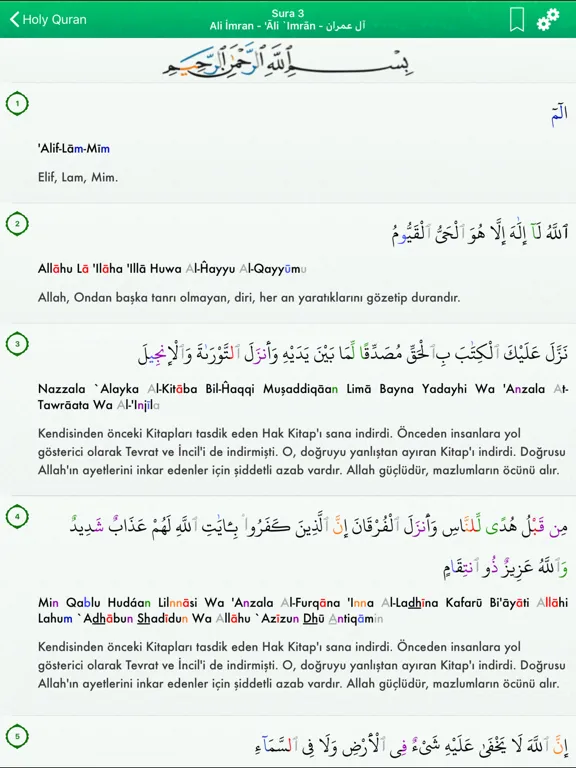 Holy Quran
Sura 3
Ali İmran - 'Āli `Imrān - آل عمران
بِسْمِ ٱللَّهِ ٱلرَّحْمَٰنِ ٱلرَّحِيمِ
1
الٓمٓ
'Alif-Lām-Mīm
Elif, Lam, Mim.
2
ٱللَّهُ لَآ إِلَٰهَ إِلَّا هُوَ ٱلْحَىُّ ٱلْقَيُّومُ
Allāhu Lā 'Ilāha 'Illā Huwa Al-Ĥayyu Al-Qayyūmu
Allah, Ondan başka tanrı olmayan, diri, her an yaratıklarını gözetip durandır.
3
نَزَّلَ عَلَيْكَ ٱلْكِتَٰبَ بِٱلْحَقِّ مُصَدِّقًا لِّمَا بَيْنَ يَدَيْهِ وَأَنزَلَ ٱلتَّوْرَىٰةَ وَٱلْإِنجِيلَ
Nazzala `Alayka Al-Kitāba Bil-Ĥaqqi Muşaddiqāan Limā Bayna Yadayhi Wa 'Anzala At-
Tawrāata Wa Al-'Injīla
Kendisinden önceki Kitapları tasdik eden Hak Kitap'ı sana indirdi. Önceden insanlara yol
gösterici olarak Tevrat ve İncil'i de indirmişti. O, doğruyu yanlıştan ayıran Kitap'ı indirdi. Doğrusu
Allah'ın ayetlerini inkar edenler için şiddetli azab vardır. Allah güçlüdür, mazlumların öcünü alır.
4
مِن قَبْلُ هُدًى لِّلنَّاسِ وَأَنزَلَ ٱلْفُرْقَانَ إِنَّ ٱلَّذِينَ كَفَرُوا۟ بِـَٔايَٰتِ ٱللَّهِ لَهُمْ عَذَابٌ شَدِيدٌ
وَٱللَّهُ عَزِيزٌ ذُو ٱنتِقَامٍ
Min Qablu Hudáan Lilnnāsi Wa 'Anzala Al-Furqāna 'Inna Al-Ladhīna Kafarū Bi'āyāti Allāhi
Lahum `Adhābun Shadīdun Wa Allāhu `Azīzun Dhū Antiqāmin
Kendisinden önceki Kitapları tasdik eden Hak Kitap'ı sana indirdi. Önceden insanlara yol
gösterici olarak Tevrat ve İncil'i de indirmişti. O, doğruyu yanlıştan ayıran Kitap'ı indirdi. Doğrusu
Allah'ın ayetlerini inkar edenler için şiddetli azab vardır. Allah güçlüdür, mazlumların öcünü alır.
5
إِنَّ ٱللَّهَ لَا يَخْفَىٰ عَلَيْهِ شَىْءٌ فِى ٱلْأَرْضِ وَلَا فِى ٱلسَّمَآءِ